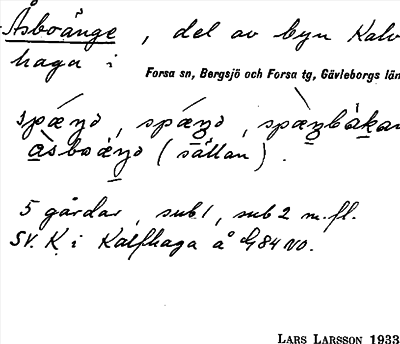 Åsboänge, del av byn Kalv
haga i Forsa sn, Bergsjö och Forsa tg, Gävleborgs län
spǽŋə, spǽŋə, spæŋbàkan
àsboǽŋə (sällan).
5 gårdar, sub 1, sub 2 m.fl.
SV. K. i Kalfhaga å G84 NO.
LARS LARSSON 1933